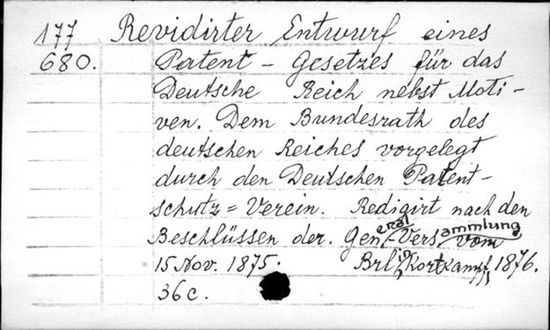 177 Revidirter Entwurf eines
680. Patent - Gesetzes für das
Deutsche Reich nebst Moti-
ven. Dem Bundesrath des
deutschen Reiches vorgelegt
durch den Deutschen Patent-
schutz = Verein. Redigirt nach den
Beschlüssen der. General-Versammlung vom
15 Nov. 1875. Brlin, Kortkampf, 1876.
36 c.